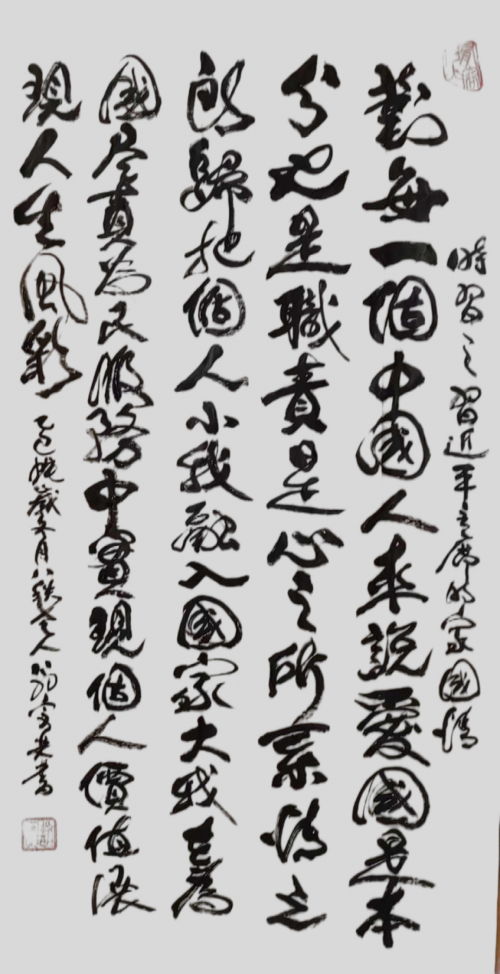 時習之習近平主席的家國情
對每一個中國人來說愛國是本
分也是職責是心之所系情之
所歸把個人小我融入國家大我為
國尽責為民服務中實現個人價值展
現人生風彩
乙巳歲月八秩老人翁書